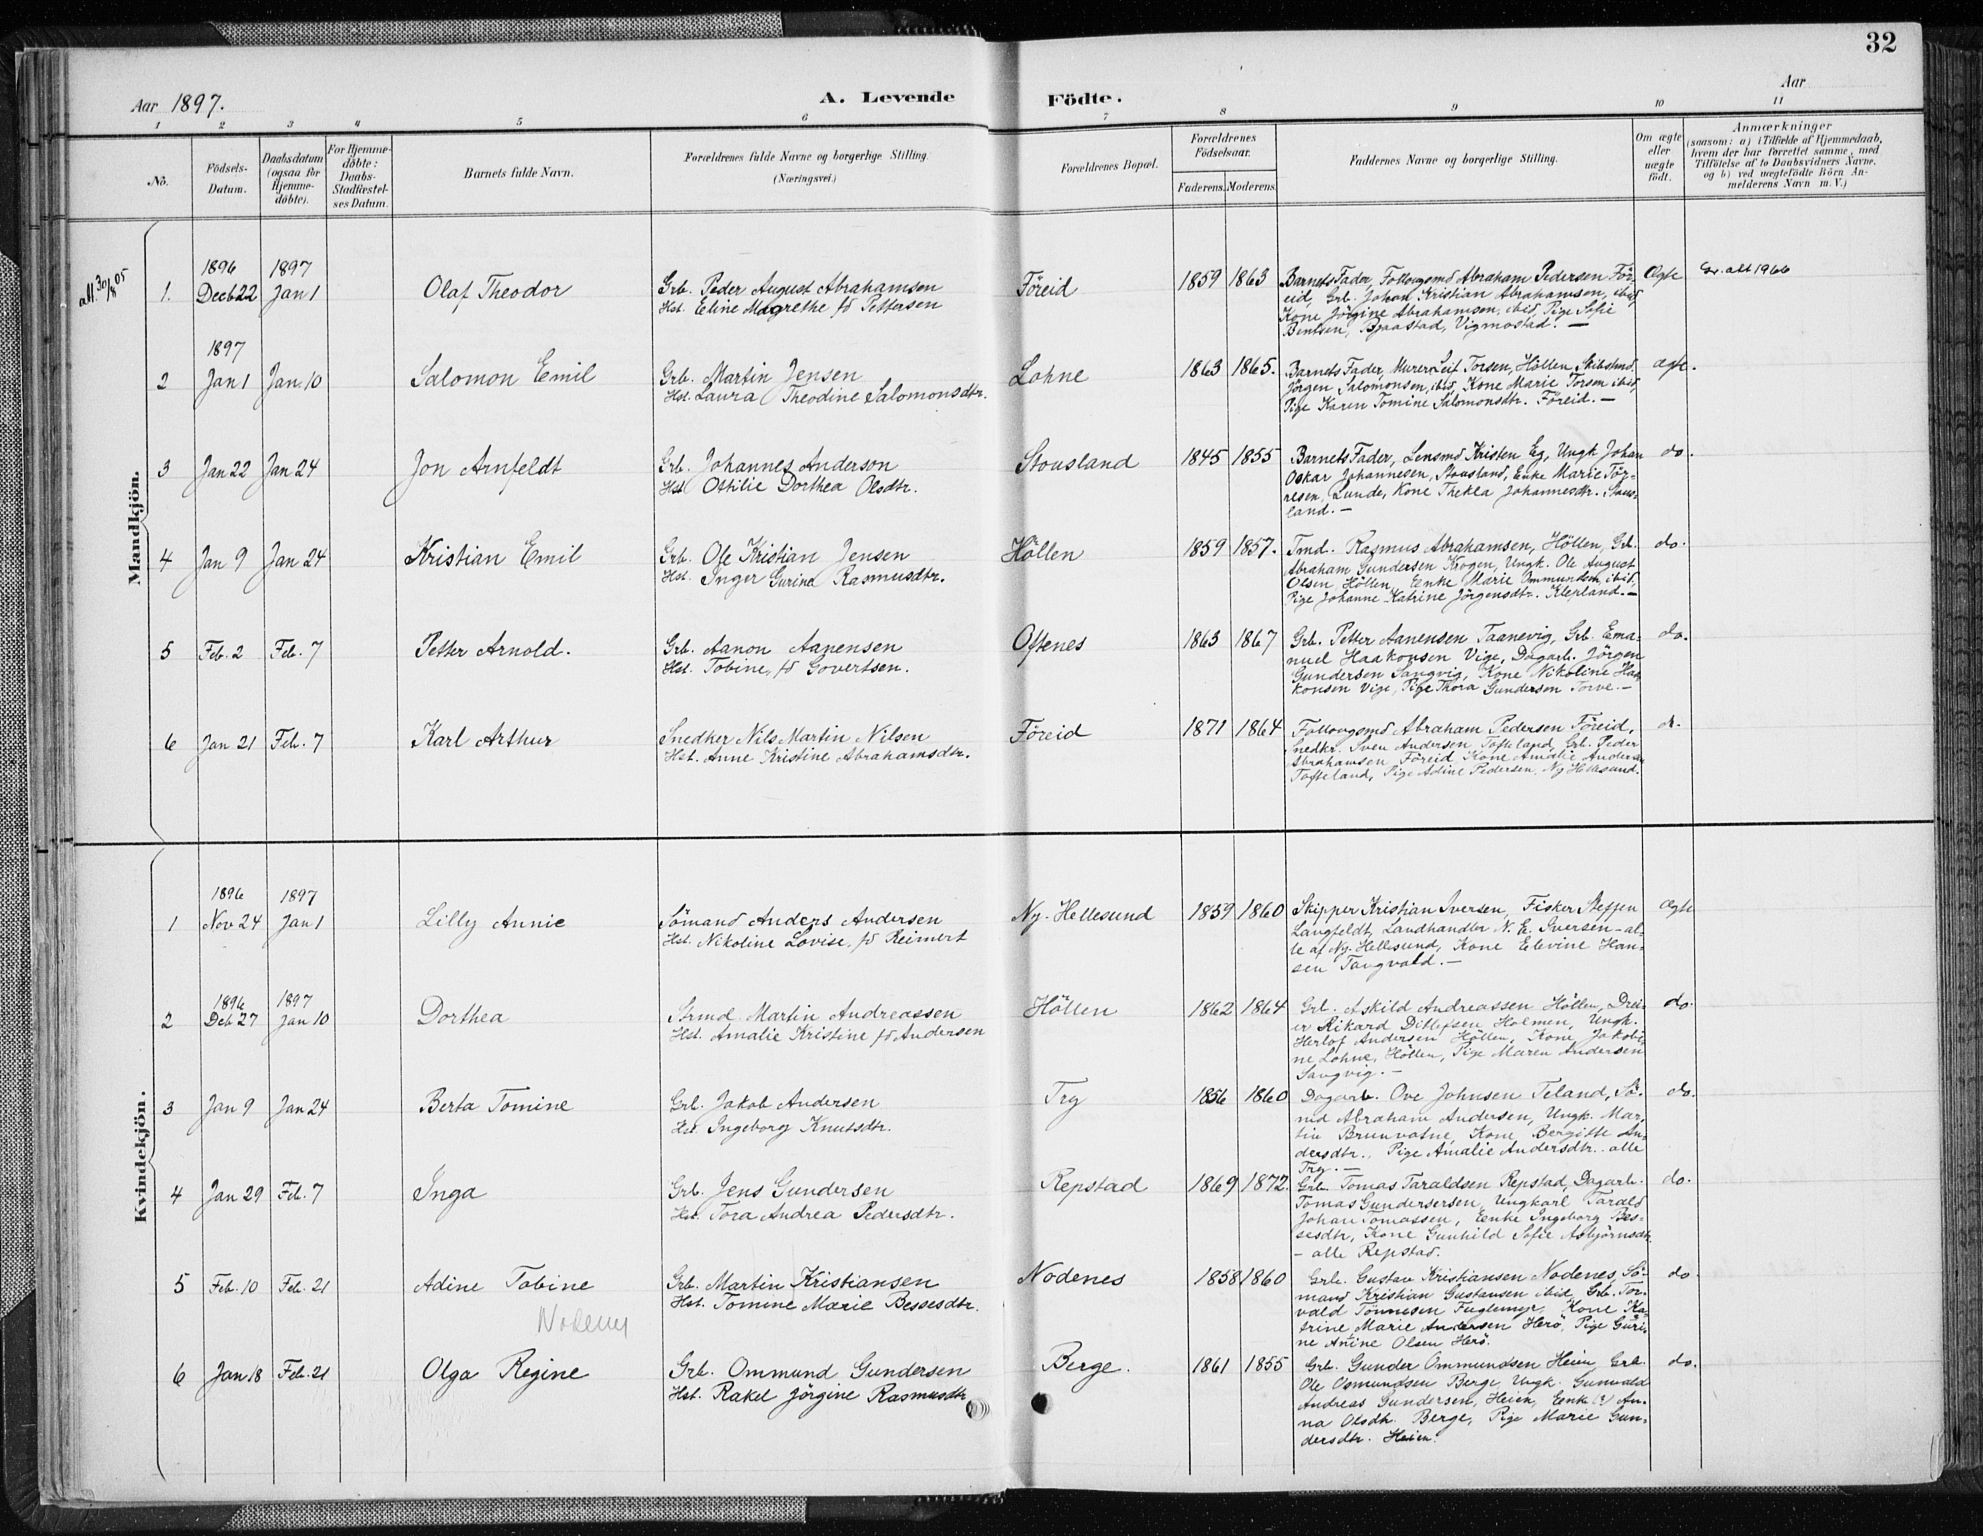 32
Aar 1897. A. Levende Födte. Aar
1 2 3 4 5 6 7 8 9 10 11
No.
Födsels-
Datum.
Daabsdatum
(ogsaa for
Hjemme-
døbte).
For Hjemme-
døbte:
Daabs-
Stadfæstel-
ses Datum.
Barnets fulde Navn.
Forældrenes fulde Navne og borgerlige Stilling.
(Næringsvei.)
Forældrenes Bopæl.
Forældrenes
Födselsaar.
Faderens. Moderens.
Faddernes Navne og borgerlige Stilling.
Om ægte
eller
uægte
födt.
Anmærkninger
(saasom: a) i Tilfælde af Hjemmedaab,
hvem der har forrettet samme, med
Tilføielse af to Daabsvidners Navne.
og b) ved uægtefödte Börn An-
melderens Navn m. V.)
Mandkjön.
alt. 30/8 05
1. 1896 Decb 22 1897 Jan 1 Olaf Theodor
Grb. Peder August Abrahamsen
Hst. Eline Magrethe fd Pettersen
Föreid 1859 1863
Barnets Fader, Follougsmd Abraham Pedersen För-
eid, Grb. Johan Kristian Abrahamsen, ibid
Kone Jörgine Abrahamsen, ibid, Pige Sofie
Bentsen, Bjaastad, Vigmostad. —
Ægte alt 1966
2 1897 Jan 1 Jan 10 Salomon Emil
Grb. Martin Jensen
Hst. Laura Theodine Salomonsdtr.
Lohne 1863 1865.
Barnets Fader, Murer Leif Torsen, Höllen, Skibstmd.
Jörgen Salomonsen, ibid, Kone Marie Torsen ibid,
Pige Karen Tomine Salomonsdtr. Föreid. —
ægte.
3 Jan 22 Jan 24 Jon Arnfeldt
Grb. Johannes Anderson
Hst. Othilie Dorthea Olsdtr.
Stousland 1845 1855
Barnets Fader, Lensmd Kristen Eg, Ungk Johan
Oskar Johannesen, Stousland, Enke Marie Tör-
resen, Lunde, Kone Thekla Johannesdtr. Stous-
land. —
do.
4 Jan 9 Jan 24 Kristian Emil
Grb. Ole Kristian Jensen
Hst. Inger Gurine Rasmusdtr.
Höllen 1859 1857.
Tmd. Rasmus Abrahamsen, Höllen, Grb.
Abraham Gundersen Krogen, Ungk. Ole August
Olsen, Höllen, Enke Marie Ommundsen, ibid,
Pige Johanne Katrine Jörgensdtr. Klepland. —
do.
5 Feb. 2 Feb. 7 Petter Arnold.
Grb. Aanon Aanensen
Hst. Tobine, fd Govertsen.
Oftenes 1863 1867
Grb. Petter Aanensen Taanevig, Grb. Ema-
nuel Haakonsen Vige, Dagarb. Jörgen
Gundersen Langvig, Kone Nikoline Haa-
konsen Vige, Pige Thora Gundersen Torve. —
do.
6 Jan 21 Feb. 7 Karl Arthur
Snedker Nils Martin Nilsen
Hst. Anne Kristine Abrahamsdtr.
Föreid 1871 1864
Follougsmd Abraham Pedersen Föreid,
Snedkr. Sven Andersen Tofteland, Grb. Peder
Abrahamsen Föreid, Kone Amalie Andersen
Tofteland, Pige Adine Pedersen, Ny Hellesund.
do.
Kvindekjön.
1 1896 Nov 24 1897 Jan 1 Lilly Annie
Sömand Anders Andersen
Hst. Nikoline Lovise, fd Reimert
Ny-Hellesund 1859 1860
Skipper Kristian Iversen, Fisker Steffen
Langfeldt, Landhandler N. E. Iversen - al-
le af Ny-Hellesund, Kone Elevine Han-
sen Tangvald. —
Ægte
2 1896 Deb 27 1897 Jan 10 Dorthea
Strmd. Martin Andreassen
Hst. Amalie Kristine fd Andersen
Höllen 1862 1864
Grb. Askild Andreassen Höllen, Drei-
er Rikard Ditlefsen Holmen, Ungk.
Herlof Andersen Höllen, Kone Jakobi-
ne Lohne, Höllen, Pige Maren Andersen
Langvig. —
do.
3 Jan 9 Jan 24 Berta Tomine
Grb. Jakob Andersen
Hst. Ingeborg Knutsdtr.
Try 1856 1860
Dagarb. Ove Johnsen Teland, Sö-
md Abraham Andersen, Ungk. Mar-
tin Brunvatne, Kone Bergitte An-
dersdtr., Pige Amalie Andersdtr. alle
Try. —
do.
4 Jan 29 Feb. 7 Inga
Grb. Jens Gundersen
Hst. Tora Andrea Pedersdtr.
Repstad 1869 1872.
Grb. Tomas Taraldsen Repstad, Dagarb.
Tomas Gundersersen, Ungkarl Tarald
Johan Tomassen, Enke Ingeborg Bes-
sesdtr, Kone Gunhild Sofie Asbjörnsdtr.
- alle Repstad.
do.
5 Feb. 10 Feb. 21 Adine Tobine
Nodenes
Grb. Martin Kristiansen
Hst. Tomine Marie Bessesdtr.
Nodenes 1858 1860
Grb. Gustav Kristiansen Nodenes, Sö-
mand Kristian Gustavsen ibid, Grb. Tor-
vald Tönnesen Fuglemyr, Kone Ka-
trine Marie Andersen Herö, Pige Guri-
ne Anine Olsen Herö.
do.
6 Jan 18 Feb. 21 Olga Regine
Grb. Ommund Gundersen
Hst. Rakel Jörgine Rasmusdtr.
Berge. 1861 1855
Grb. Gunder Ommundsen Heien, Grb.
Ole Osmundsen Berge, Ungk. Gunvald
Andreas Gundersen, Heien, Enke (?) An-
na Olsdtr. Berge, Pige Marie Gun-
dersdtr. Heien.
do.